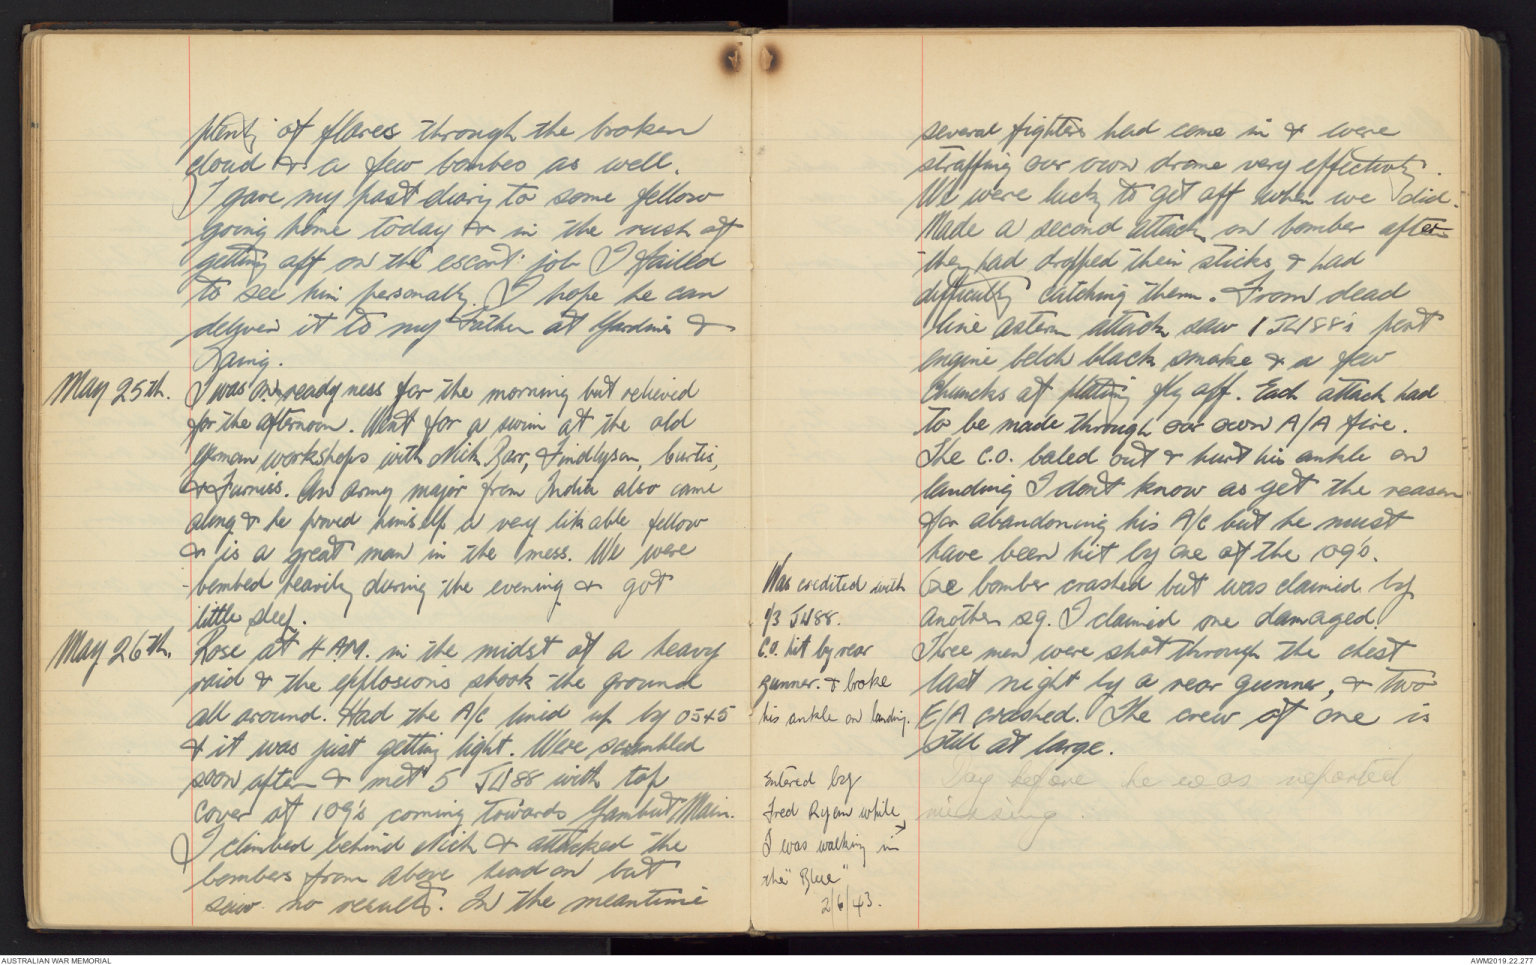 plenty of flares through the broken
cloud & a few bombes as well.
I gave my past diary to some fellow
going home today & in the rush of
getting off on the escort job I failed
to see him personally. I hope he can
deliver it to my Father at Yardins &
May 25th. I was on readyness for the morning but relieved
for the afternoon. Went for a swim at the old
German workshops with Nick Barr, Findlyson, Curtis,
& Furness. An army major from India also came
along & he proved himself a very likable fellow
& is a great man in the mess. We were
bombed heavily during the evening & got
little sleep.
May 26th. Rose at 4 A.M. in the midst of a heavy
raid & the explosions shook the ground
all around. Had the A/C lined up by 0545
& it was just getting light. Were scrambled
soon after & met 5 JU88 with top
cover of 109's coming towards Gambut Main.
I climbed behind Nick & attacked the
bombers from above head on but
saw no results. In the meantime
several fighters had come in & were
straffing our own drome very effictivly.
We were lucky to get off when we did.
Made a second attack on bomber after
they had dropped their sticks & had
difficulty catching them. From dead
line astern attack saw 1 JU88's port
engine belch black smoke & a few
chuncks of platting fly off. Each attack had
to be made through our own A/A fire.
The C.O. baled out & hurt his ankle on
landing I don't know as yet the reason
for abandoning his A/C but he must
have been hit by one of the 109's.
One bomber crashed but was claimed by
another sq. I claimed one damaged
Three men were shot through the chest
last night by a rear gunner, & two
E/A crashed. The crew of one is
still at large.
Day before he was reported
missing.
Was credited with
1/3 JU88.
C.O. hit by rear
gunner. & broke
his ankle on landing.
Entered by
Fred Ryan while
I was walking in
the "Blue"
2/6/43.
AUSTRALIAN WAR MEMORIAL
AWM2019.22.277